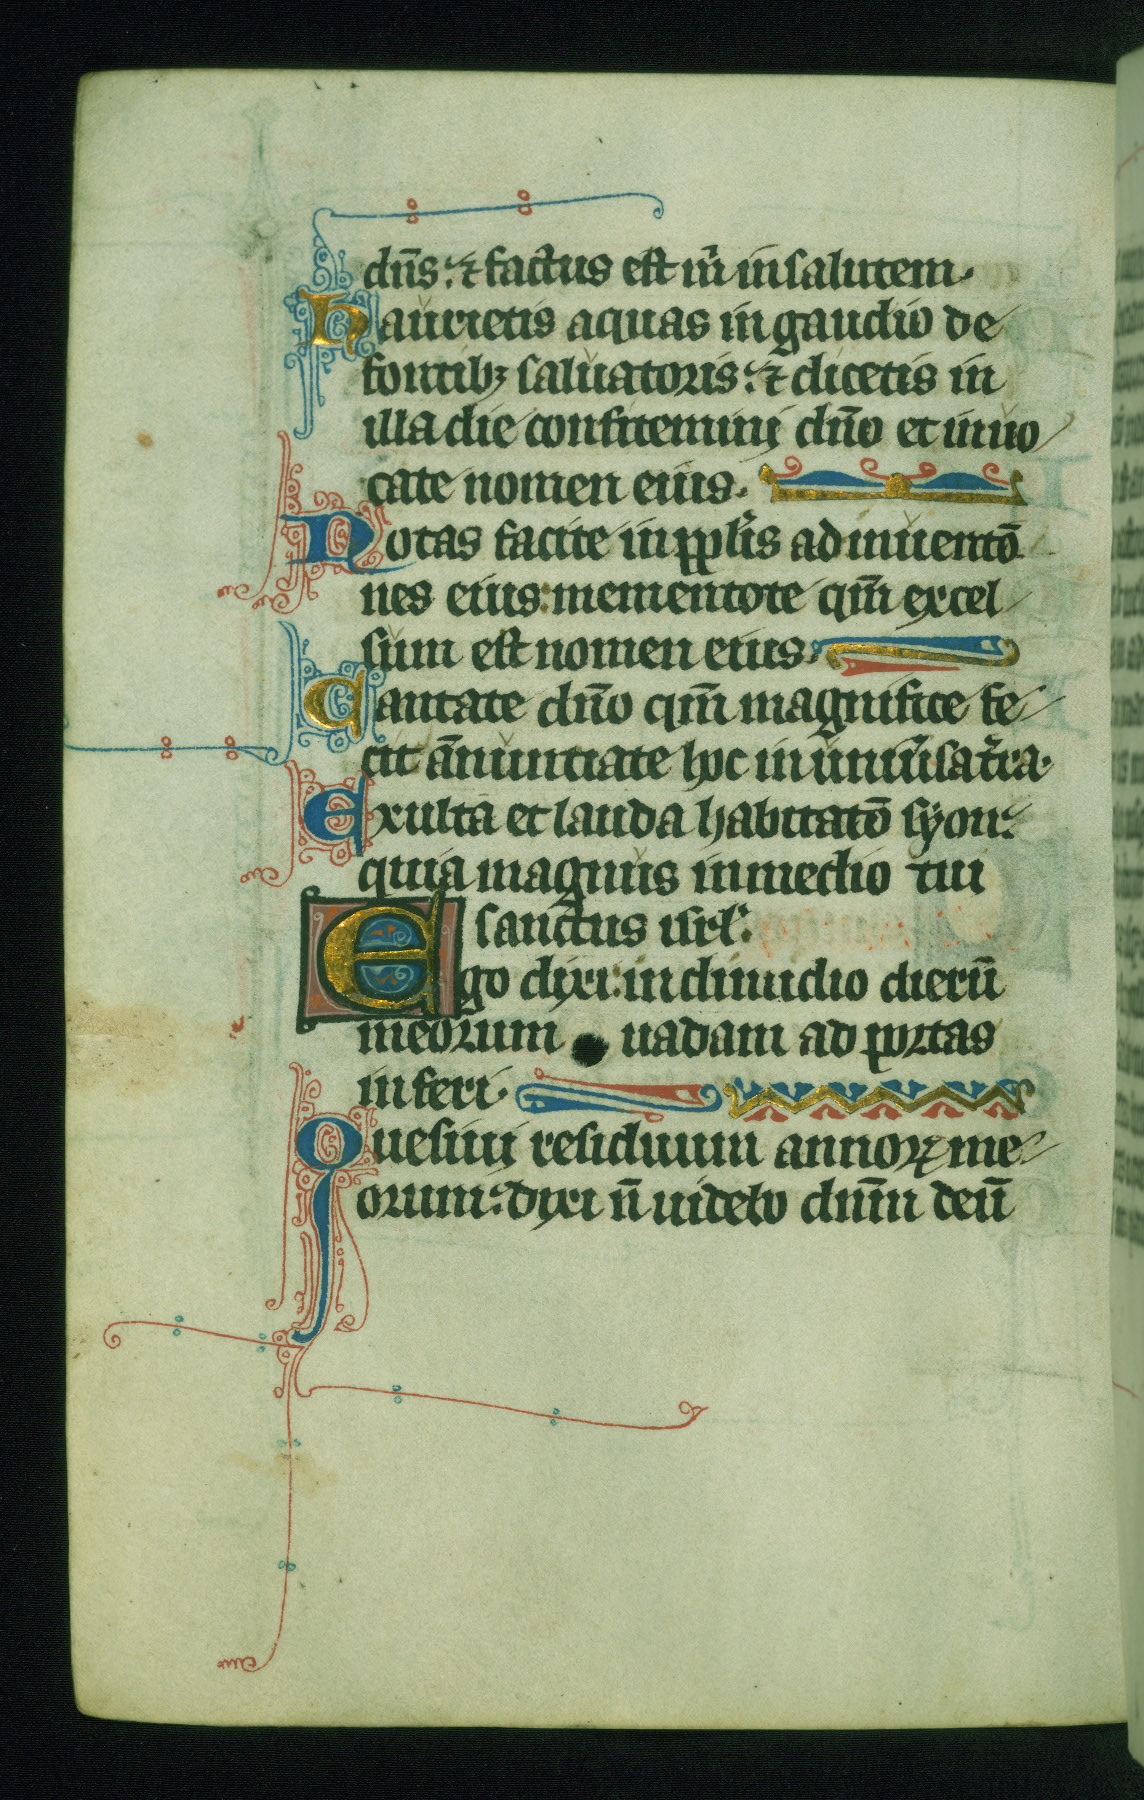 dn̄s: ⁊ factus est m̄ in salutem.
Haurietis aquas in gaudio de
fontibꝫ saluatoris: ⁊ dicetis in
illa die confitemini dn̄o et inuo
cate nomen eius.
Notas facite in ppl̄is adinuentō
nes eius: mementote qm̄ excel
sum est nomen eius.
Cantate dn̄o qm̄ magnifice fe
cit ān̄untiate hoc in uniūsa t̄ra.
Exulta et lauda habitatō syon:
quia magnus in medio tui
sanctus isrl̄.
Ego dixi: in dimidio dierū
meorum uadam ad portas
inferi.
Quesiui residuum annoꝝ me
orum: dixi n̄ uidebo dn̄m deū